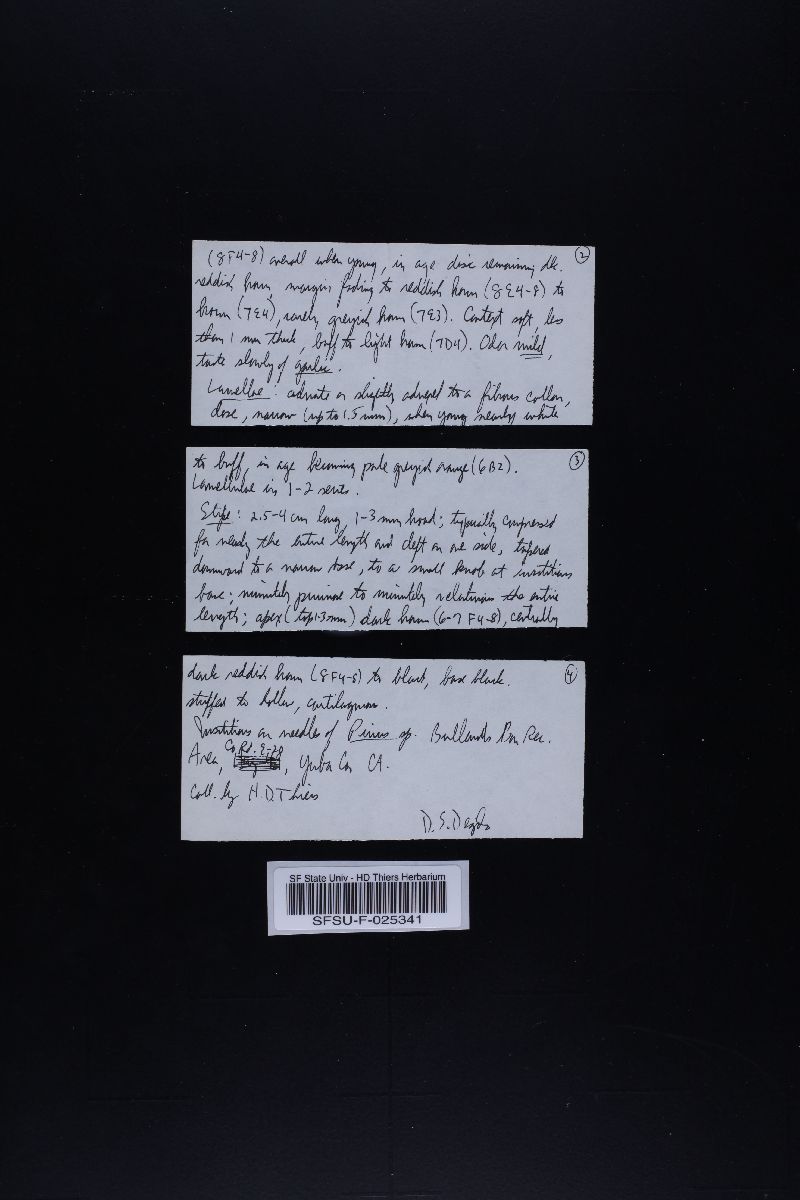 ②
(8F4-8) overall when young, in age disc remaining dk.
reddish brown, margin fading to reddish brown (8E4-8) to
brown (7E4), rarely greyish brown (7E3). Context soft, less
than 1 mm thick, buff to light brown (7D4). Odor mild,
taste slowly of garlic.
Lamellae: adnate or slightly adnexed to a fibrous collar,
close, narrow (up to 1.5 mm), when young nearly white
③
to buff, in age becoming pale greyish orange (6B2).
Lamellulae in 1-2 series.
Stipe: 2.5-4 cm long, 1-3 mm broad; typically compressed
for nearly the entire length and cleft on one side, tapered
downward to a narrow base, to a small knob at insititious
base; minutely pruinose to minutely velutinous the entire
length; apex (top 1-3 mm) dark brown (6-7 F4-8), centrally
④
dark reddish brown (8F4-8) to black, base black.
stuffed to hollow, cartilaginous.
Insititious on needles of Pinus sp. Bullards Bar Rec.
Co. Rd. E-20
Area, , Yuba Co. CA.
Coll. by H.D. Thiers
D. E. Desjardin
SF State Univ - HD Thiers Herbarium
SFSU-F-025341